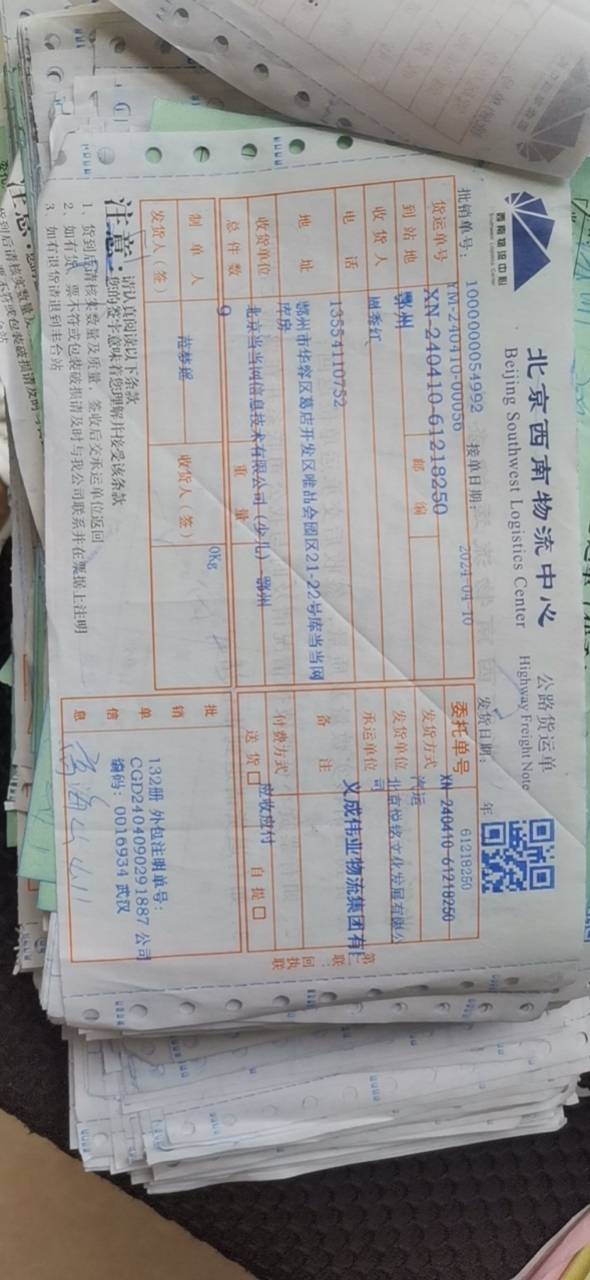 西南物流中心
Southwest Logistics Center
北京西南物流中心
Beijing Southwest Logistics Center
公路货运单
Highway Freight Note
批销单号： 1000000054992 接单日期： 2024-04-10 发货日期： 年
YM-240410-00056
货运单号 XN-240410-61218250
到站地 鄂州 邮编
收货人 周秀红
电话 13554110752
地址 鄂州市华容区葛店开发区唯品会园区21-22号库当当网
库房
收货单位 北京当当网信息技术有限公司（少儿） 鄂州
总件数 9 重量 0Kg
制单人 范梦瑶 收货人（签）
发货人（签）
61218250
委托单号 XN-240410-61218250
发货方式 汽运
发货单位 北京悦铭文化发展有限公
司
承运单位 义成伟业物流集团有
备注
付费方式 应收应付
送货□ 自提□
批销单信息
132册 外包注明单号：
CGD2404090291887 公司
编码：0016934 武汉
第二联 回执
注意： 请认真阅读以下条款
您的签字意味着您理解并接受该条款
1、货到后请核实数量及质量，签收后交承运单位返回
2、如有货、票不符或包装破损请及时与我公司联系并在票据上注明
3、如有退货请退到丰台站